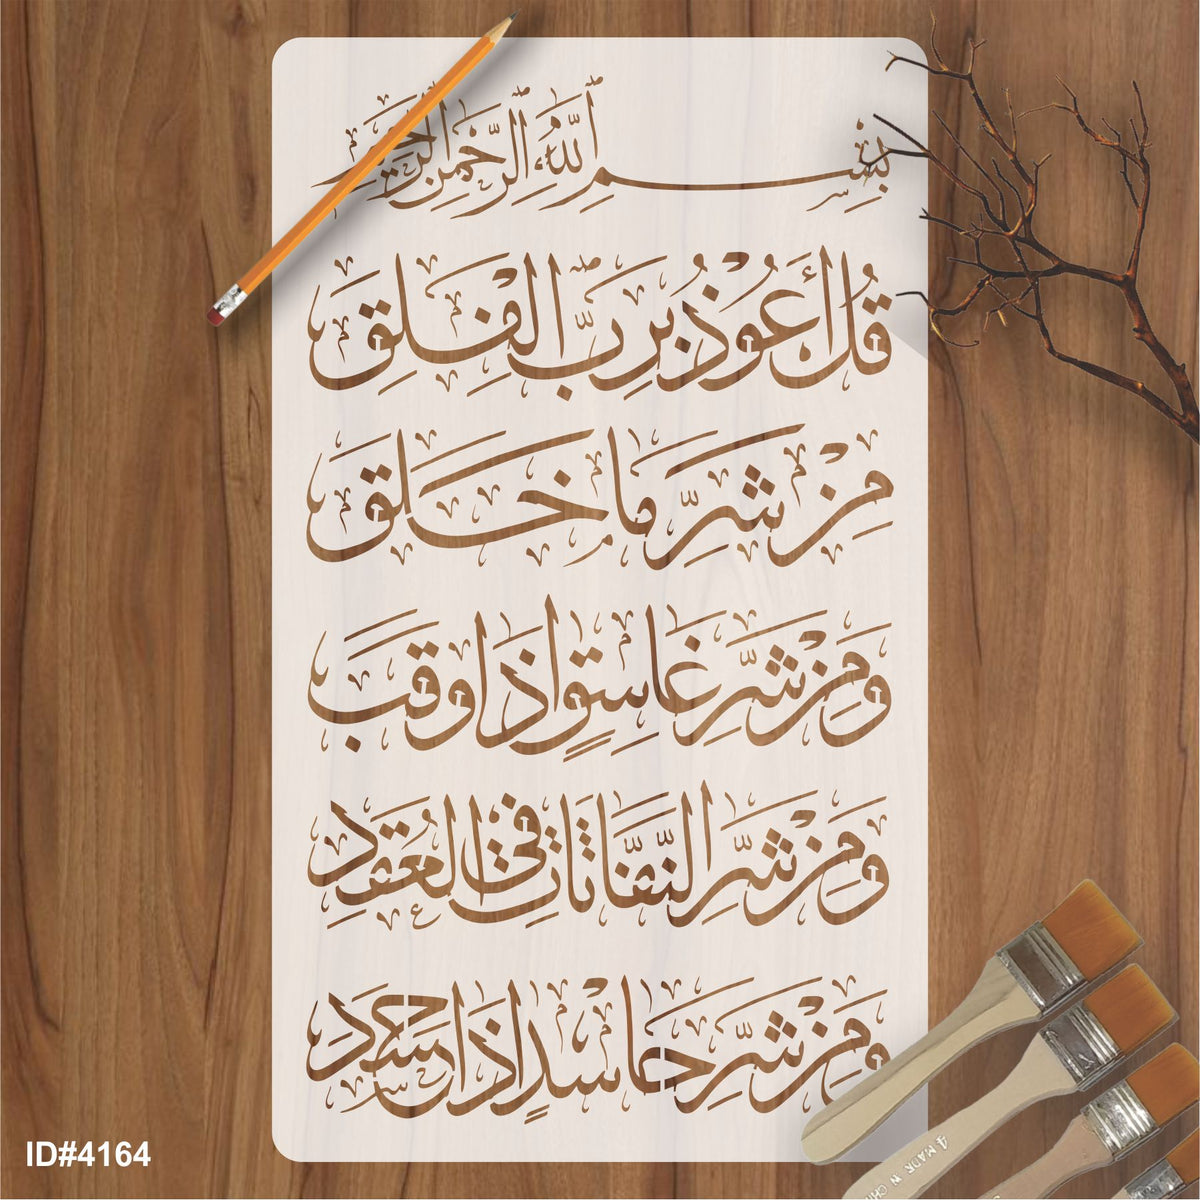 بِسْمِ اللَّهِ الرَّحْمَنِ الرَّحِيمِ
قُلْ أَعُوذُ بِرَبِّ الْفَلَقِ
مِنْ شَرِّ مَا خَلَقَ
وَمِنْ شَرِّ غَاسِقٍ إِذَا وَقَبَ
وَمِنْ شَرِّ النَّفَّاثَاتِ فِي الْعُقَدِ
وَمِنْ شَرِّ حَاسِدٍ إِذَا حَسَدَ
ID#4164
4 MADE IN CHI